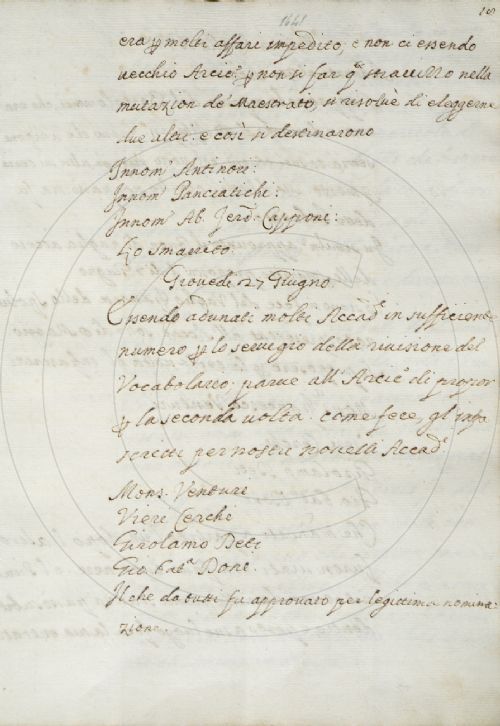 1641
18
era p molti affari impedito, e non ci essendo
vecchio Arcic.º p non si far q.º stravizzo nella
mutazion de Maestrati, si risolvè di eleggerne
due altri. e così si destinarono
Innom.º Antinori.
Innom.º Panciatichi.
Innom.º Ab. Ferd. Capponi.
Lo Smarrito.
Giovedi 27 Giugno.
Essendo adunati molti Accad.ᶜⁱ in sufficiente
numero p lo servigio della revisione del
Vocabolario, parve all' Arcic.º di propor
p la seconda volta. come fece, gl' infra
scritti per nostri novelli Accad.ᶜⁱ
Mons. Venturi
Vieri Cerchi
Girolamo Deti
Gio. Bat.ª Doni.
Il che da tutti fu approvato per legittima nomina=
zione.